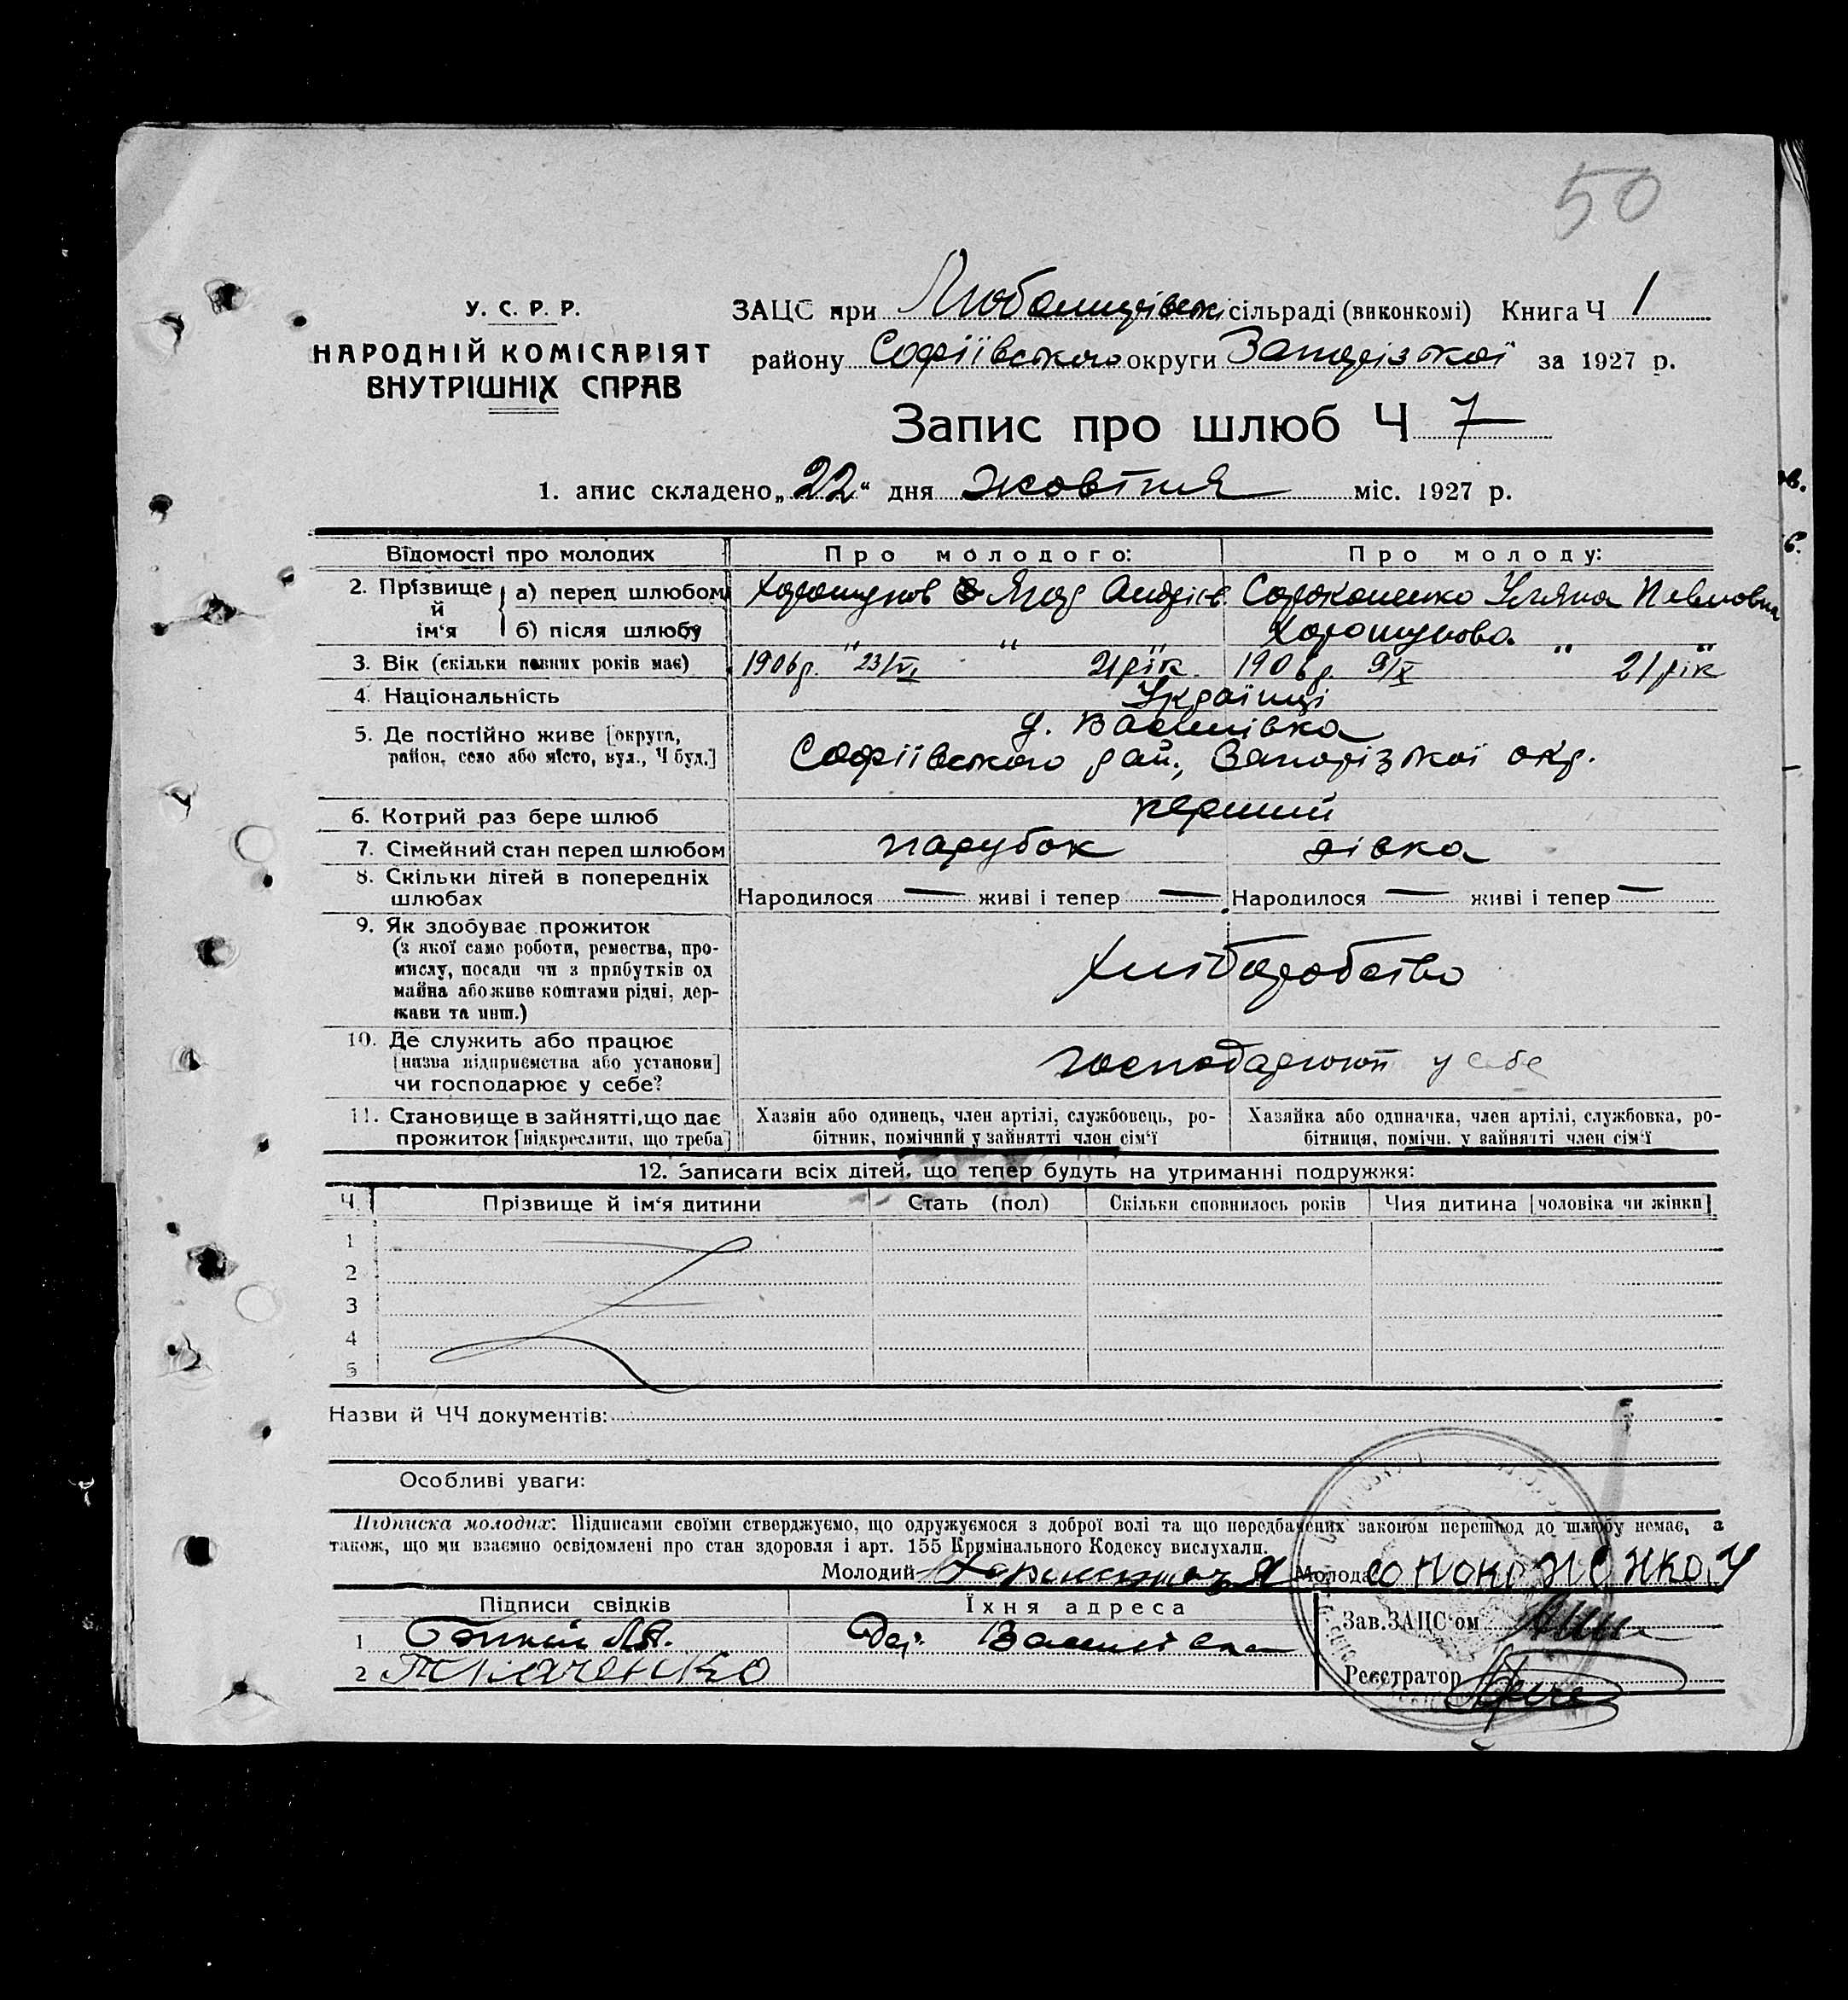 50
У. С. Р. Р.
НАРОДНІЙ КОМІСАРІЯТ
ВНУТРІШНІХ СПРАВ
ЗАЦС при Любомирівськ сільраді (виконкомі) Книга Ч 1
району Софіївського округи Запорізької за 1927 р.
Запис про шлюб Ч 7
1. апис складено „22“ дня жовтня міс. 1927 р.
Відомості про молодих Про молодого: Про молоду:
2. Прізвище й ім‘я
а) перед шлюбом Хорошунов Яков Андрієв. Сороконенко Уляна Павловна
б) після шлюбу " " Хорошунова " "
3. Вік (скільки повних років має) 1906р. 23/VI 21 рік. 1906р. 9/X 21 рік
4. Національність Українці
5. Де постійно живе [округа, район, село або місто, вул., Ч буд.] д. Василівка
Софіївського рай., Запорізької окр.
6. Котрий раз бере шлюб перший
7. Сімейний стан перед шлюбом парубок дівка
8. Скільки дітей в попередніх шлюбах Народилося — живі і тепер — Народилося — живі і тепер —
9. Як здобуває прожиток
(з якої саме роботи, ремества, про-
мислу, посади чи з прибутків од
майна або живе коштами рідні, дер-
жави та инш.)
Хліборобство
10. Де служить або працює
[назва підприємства або установи]
чи господарює у себе?
господарюют у себе
11. Становище в зайнятті, що дає
прожиток [підкреслити, що треба]
Хазяїн або одинець, член артілі, службовець, ро-
бітник, помічний у зайнятті член сім‘ї
Хазяйка або одиначка, член артілі, службовка, ро-
бітниця, помічн. у зайнятті член сім‘ї
12. Записати всіх дітей, що тепер будуть на утриманні подружжя:
Ч Прізвище й ім‘я дитини Стать (пол) Скільки сповнилось років Чия дитина [чоловіка чи жінки]
1
2
3
4
5
Назви й ЧЧ документів:
Особливі уваги:
Підписка молодих: Підписами своїми стверджуємо, що одружуємося з доброї волі та що передбачених законом перешкод до шлюбу немає, а
також, що ми взаємно освідомлені про стан здоровля і арт. 155 Кримінального Кодексу вислухали.
Молодий Молода
Підписи свідків Їхня адреса Зав. ЗАЦС‘ом
1 Дер. Василівка
2 Ткаченко Реєстратор